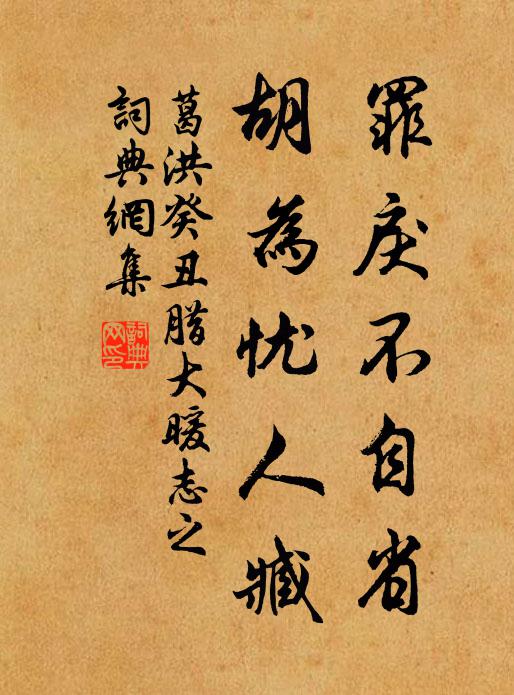 罪戾不自省
胡為忧人臧
葛洪癸丑腊大暖志之
詞典網集
詞典网印